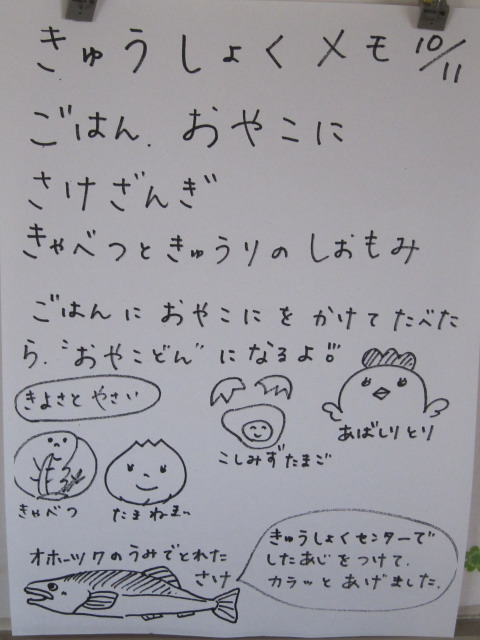 きゅうしょくメモ 10/11
ごはん. おやこに
さけざんぎ
きゃべつときゅうりのしおもみ
ごはんにおやこにをかけてたべた
ら、"おやこどん"になるよ!!
きよさと やさい
こしみずたまご
あばしりとり
きゃべつ
たまねぎ
オホーツクのうみでとれた
さけ
きゅうしょくセンターで
したあじをつけて.
カラッとあげました.